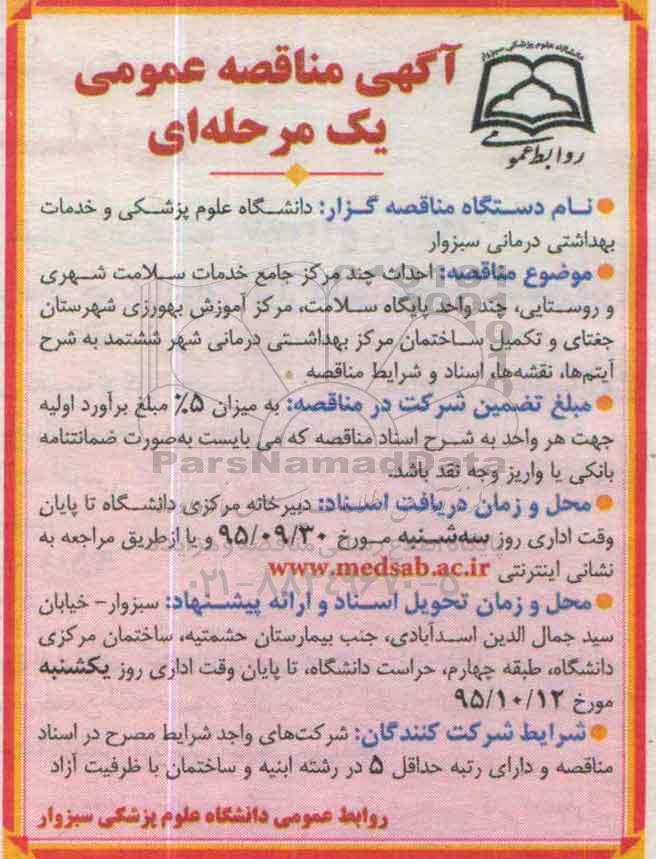 دانشگاه علوم پزشکی سبزوار
روابط عمومی
آگهی مناقصه عمومی
یک مرحله‌ای
نام دستگاه مناقصه گزار: دانشگاه علوم پزشکی و خدمات
بهداشتی درمانی سبزوار
موضوع مناقصه: احداث چند مرکز جامع خدمات سلامت شهری
و روستایی، چند واحد پایگاه سلامت، مرکز آموزش بهورزی شهرستان
جغتای و تکمیل ساختمان مرکز بهداشتی درمانی شهر ششتمد به شرح
آیتم‌ها، نقشه‌ها، اسناد و شرایط مناقصه
مبلغ تضمین شرکت در مناقصه: به میزان ۵٪ مبلغ برآورد اولیه
جهت هر واحد به شرح اسناد مناقصه که می بایست به‌صورت ضمانتنامه
بانکی یا واریز وجه نقد باشد.
ParsNamadData
محل و زمان دریافت اسناد: دبیرخانه مرکزی دانشگاه تا پایان
وقت اداری روز سه‌شنبه مورخ ۹۵/۰۹/۳۰ و یا ازطریق مراجعه به
نشانی اینترنتی www.medsab.ac.ir
۰۲۱-۸۸۳۴۹۶۷۰-۵
محل و زمان تحویل اسناد و ارائه پیشنهاد: سبزوار- خیابان
سید جمال الدین اسدآبادی، جنب بیمارستان حشمتیه، ساختمان مرکزی
دانشگاه، طبقه چهارم، حراست دانشگاه، تا پایان وقت اداری روز یکشنبه
مورخ ۹۵/۱۰/۱۲
شرایط شرکت کنندگان: شرکت‌های واجد شرایط مصرح در اسناد
مناقصه و دارای رتبه حداقل ۵ در رشته ابنیه و ساختمان با ظرفیت آزاد
روابط عمومی دانشگاه علوم پزشکی سبزوار